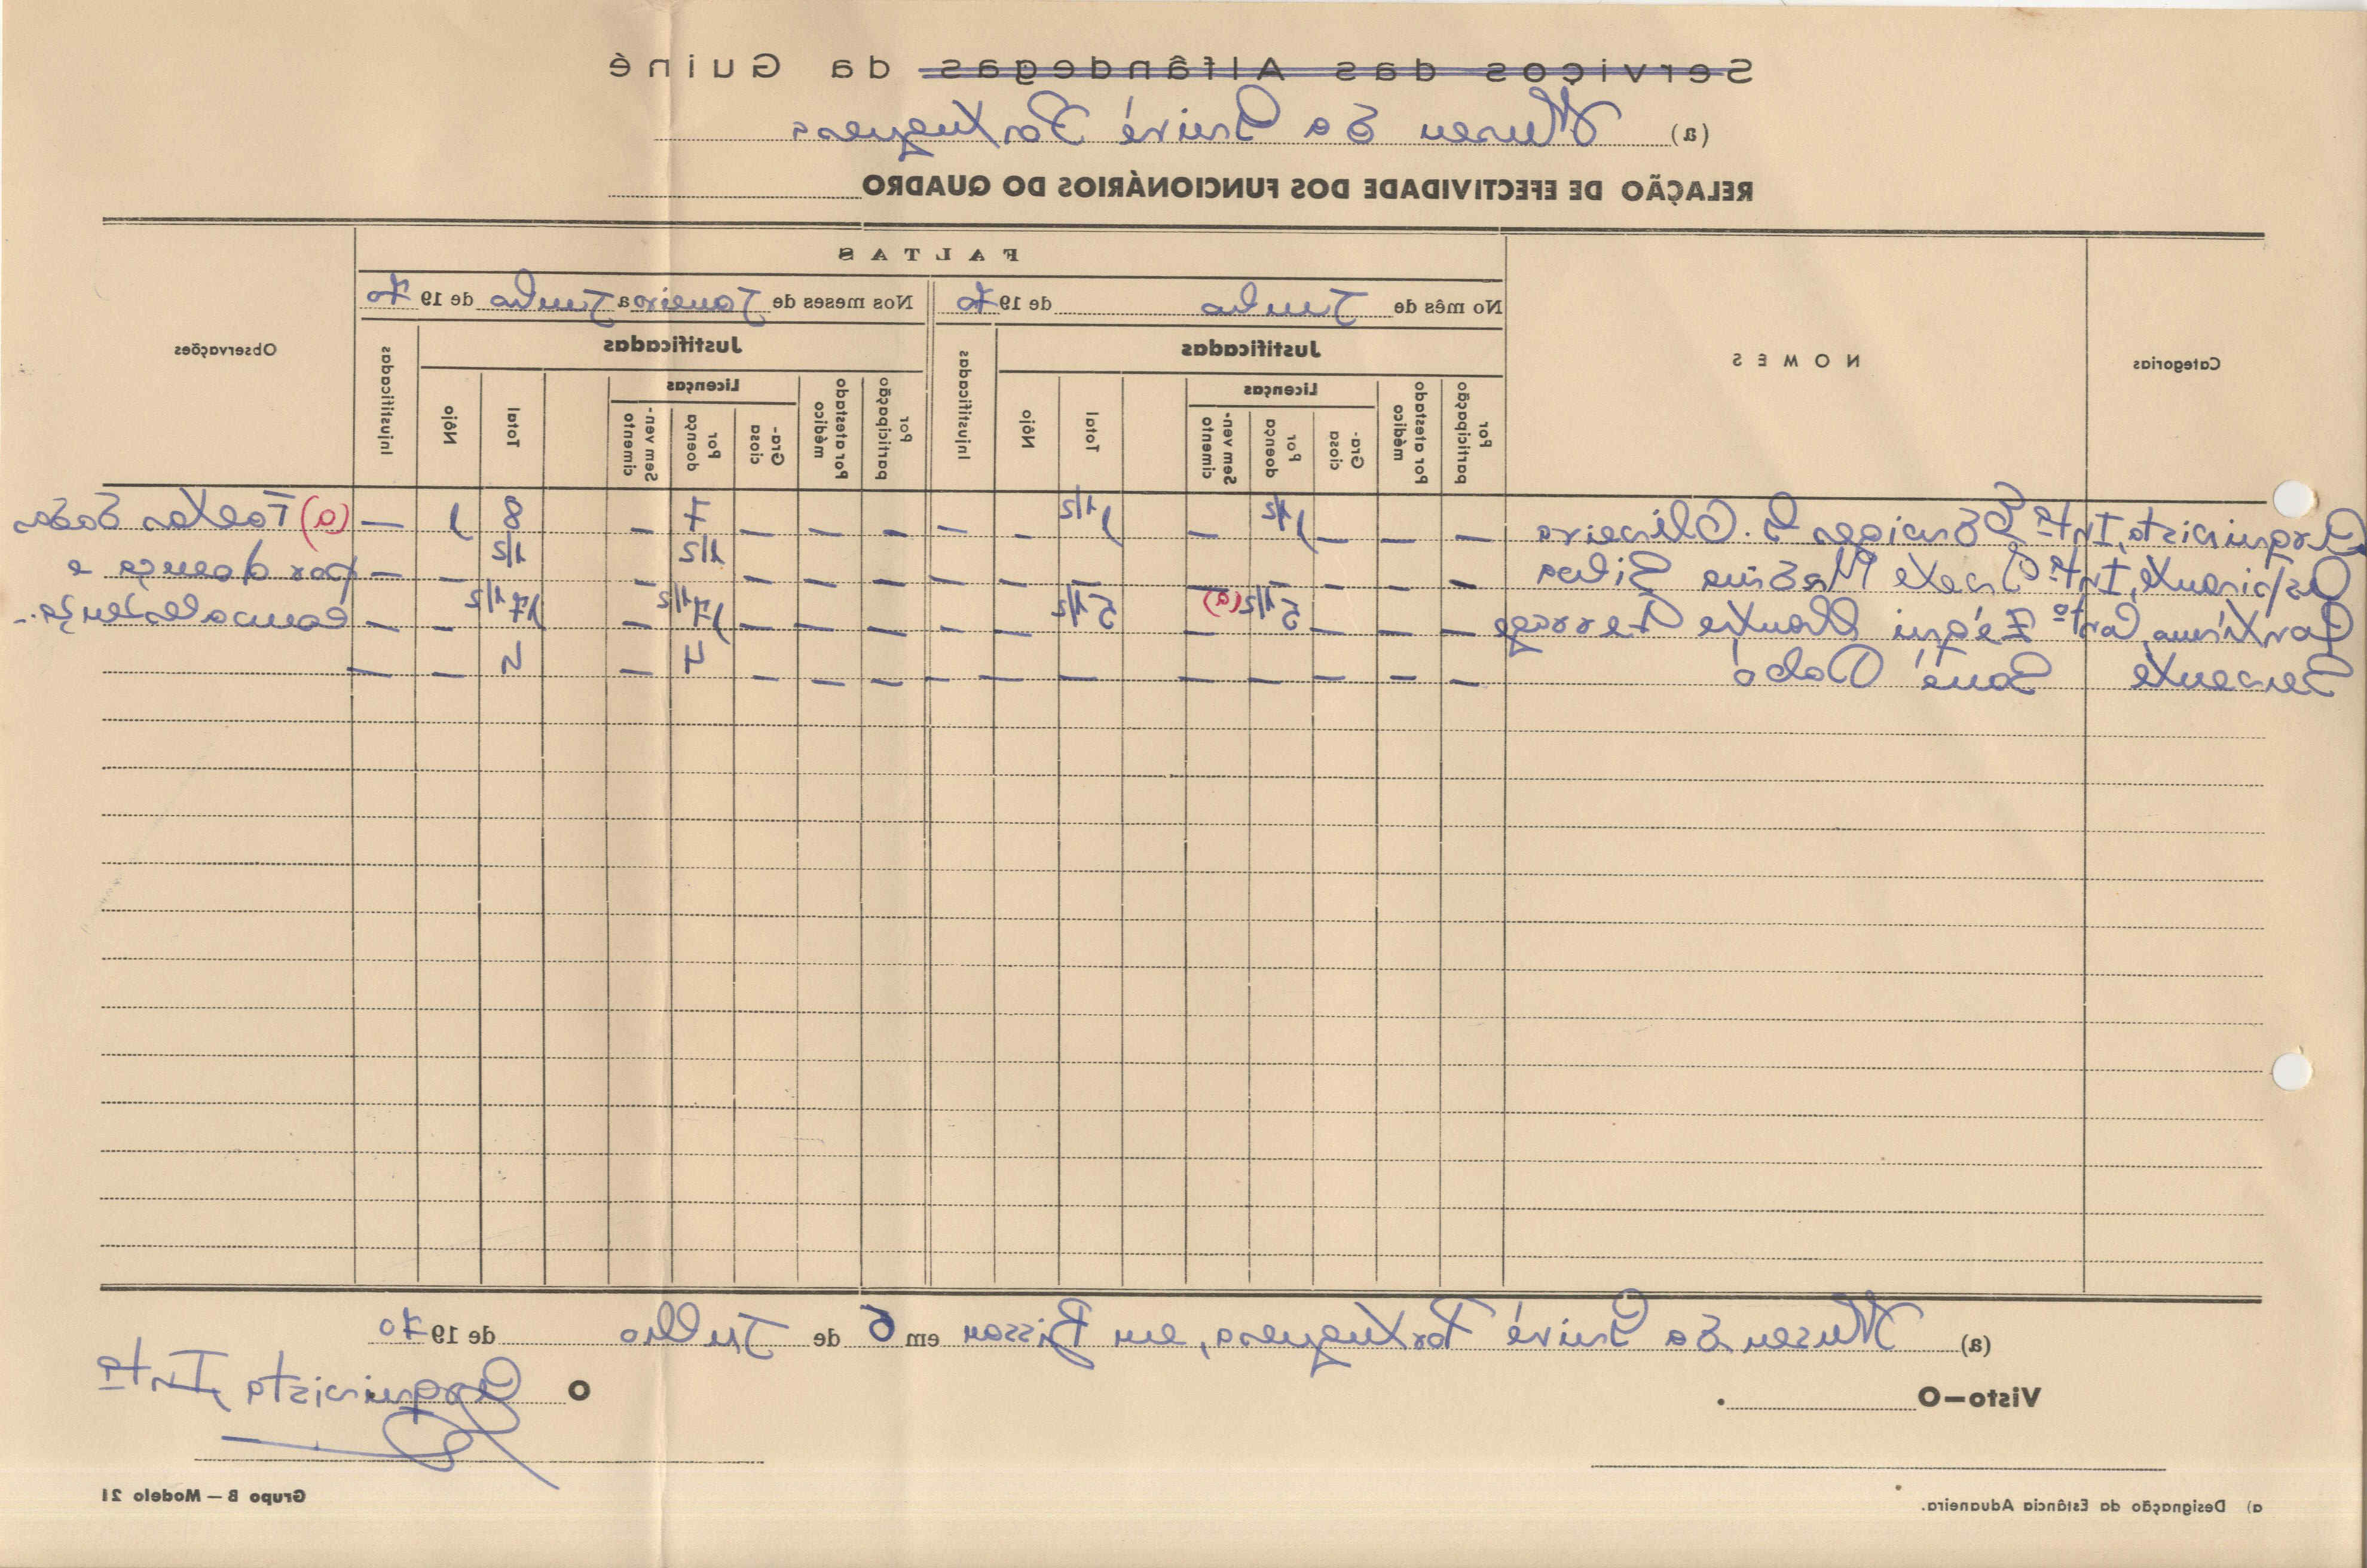 Serviços das Alfândegas da Guiné
(a) Museu da Guiné Portuguesa
RELAÇÃO DE EFECTIVIDADE DOS FUNCIONÁRIOS DO QUADRO
Categorias
NOMES
FALTAS
Observações
No mês de Junho de 1970
Nos meses de Janeiro a Junho de 1970
Justificadas
Injustificadas
Justificadas
Injustificadas
Por participação
Por atestado médico
Licenças
Gra-ciosa
Por doença
Sem ven-cimento
Total
Nôjo
Por participação
Por atestado médico
Licenças
Gra-ciosa
Por doença
Sem ven-cimento
Total
Nôjo
Arquivista, Intª Oliveira — — — 1 1/2 — 1 1/2 — — — — — 7 — 8 1 — (a) Faltas dadas
Aspirante, Intº — — — — — — — — — — — 1/2 — 1/2 — — por doença e
Contº Duarte — — — 5 1/2 (a) — 5 1/2 — — — — — 17 1/2 — 17 1/2 — — convalescença.
Servente — — — — — — — — — — — 4 — 4 — —
(a) Museu da Guiné Portuguesa, em Bissau em 6 de Julho de 1970
Visto—O
O Arquivista, Intª
a) Designação da Estância Aduaneira.
Grupo B — Modelo 21